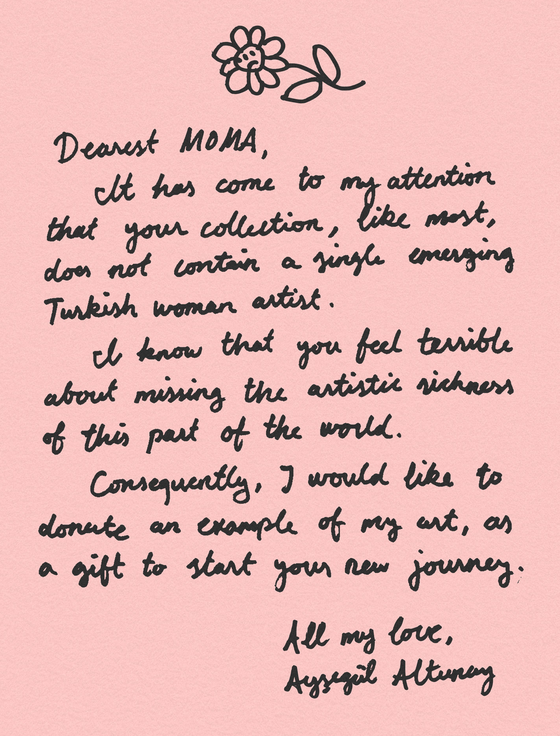 Dearest MOMA,
It has come to my attention
that your collection, like most,
does not contain a single emerging
Turkish woman artist.
I know that you feel terrible
about missing the artistic richness
of this part of the world.
Consequently, I would like to
donate an example of my art, as
a gift to start your new journey.
All my love,
Ayşegül Altunay